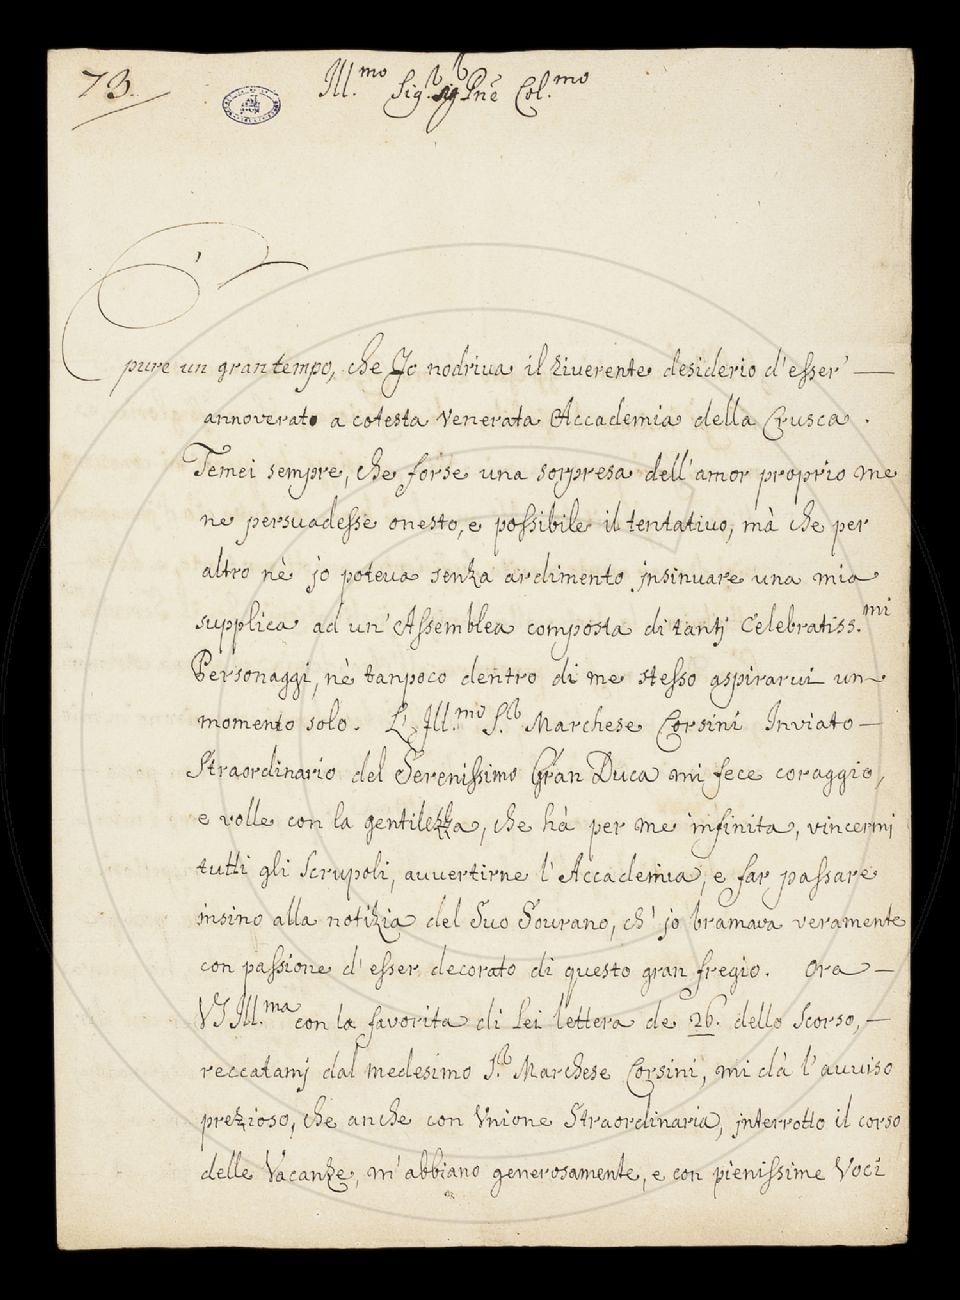 73.
Ill.mo Sig.r Sig.r Pne Col.mo
E' pure un gran tempo, che Jo nodriva il riverente desiderio d'esser'
annoverato a cotesta venerata Accademia della Crusca.
Temei sempre, che forse una sorpresa dell'amor proprio me
ne persuadesse onesto, e possibile il tentativo, mà che per
altro nè jo poteva senza ardimento insinuare una mia
supplica ad un'Assemblea composta di tantj Celebratiss.mi
Personaggi, nè tanpoco dentro di me stesso aspirarvi un
momento solo. L'Ill.mo S.r Marchese Corsini Inviato
Straordinario del Serenissimo Gran Duca mi fece coraggio,
e volle con la gentilezza, che hà per me infinita, vincermj
tutti gli Scrupoli, avvertirne l'Accademia, e far passare
insino alla notizia del Suo Sovrano, ch'jo bramava veramente
con passione d'esser decorato di questo gran fregio. Ora
VS Ill.ma con la favorita di Lei lettera de 26. dello Scorso,
reccatamj dal medesimo S.r Marchese Corsini, mi dà l'avviso
prezioso, che anche con Vnione Straordinaria, interrotto il corso
delle Vacanze, m'abbiano generosamente, e con pienissime Voci